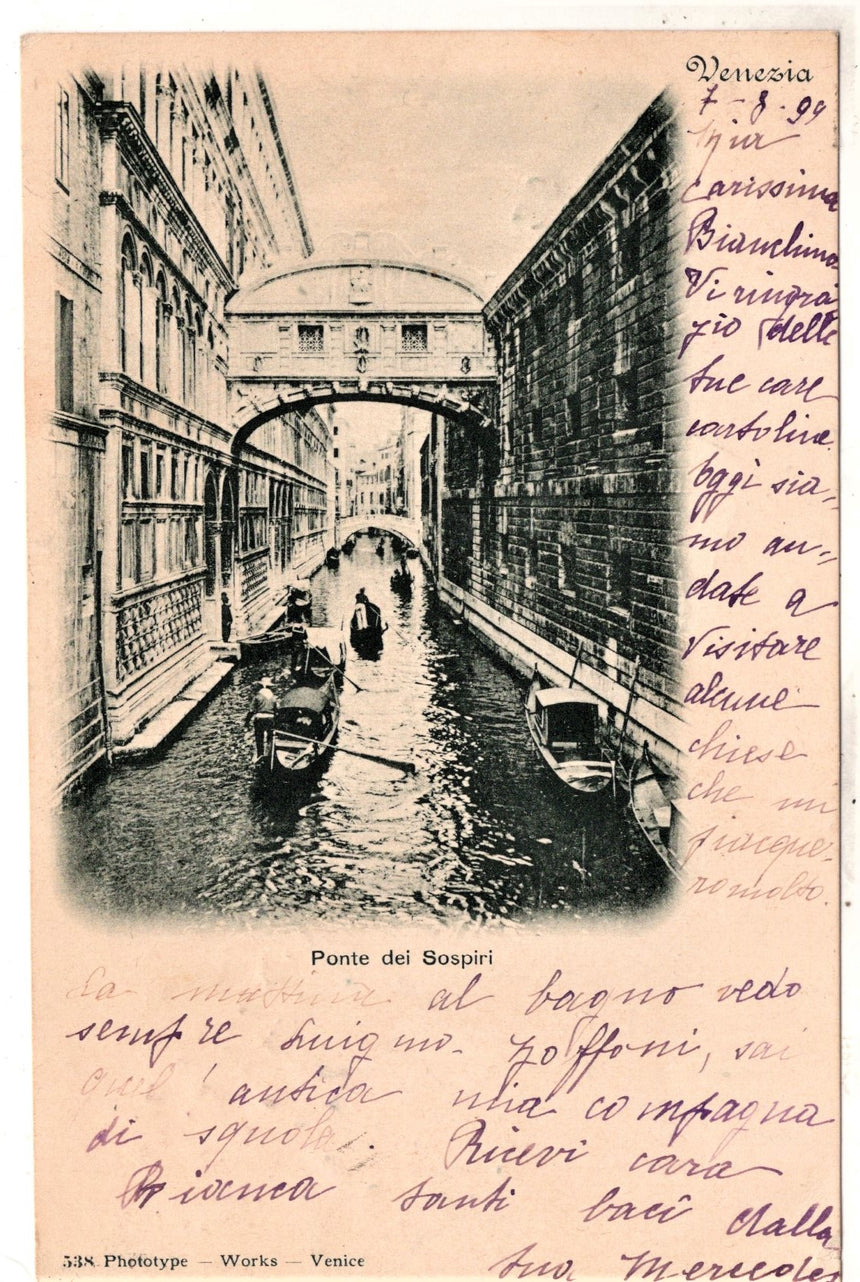 Venezia
7-8-99
Mia
carissima
Bianchina
Vi ringra
zio delle
tue care
cartoline
Oggi sia„
mo an„
date a
visitare
alcune
chiese
che mi
piacque-
ro molto.
Ponte dei Sospiri
La mattina al bagno vedo
sempre Zoffoni, sai
quel' antica mia compagna
di squola. Ricevi cara
Bianca tanti baci dalla
tua Mercedes
538. Phototype — Works — Venice